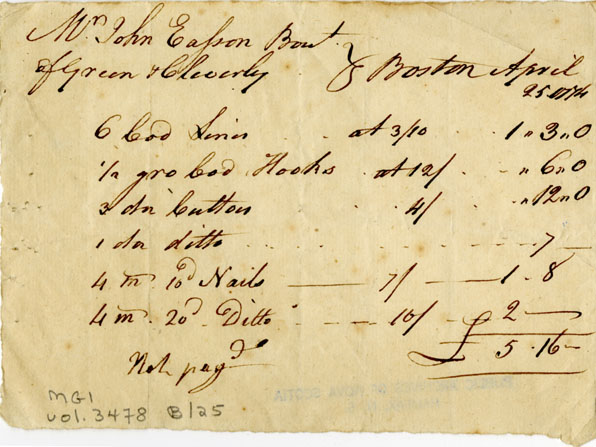 Mr. John Easson Bout.
of Green & Cleverly } Boston April
25 1774
6 Cod Lines at 3/10 1 " 3 " 0
1/2 gro Cod Hooks at 12/ " 6 " 0
3 doz buttons 4/ " 12 " 0
1 doz ditto 7 —
4 m 10d Nails 7/ 1 . 8
4 m . 20d . Ditto 10/ 2 —
£ 5 . 16 —
Not payd
MG1
vol. 3478 B/25
PUBLIC ARCHIVES OF NOVA SCOTIA